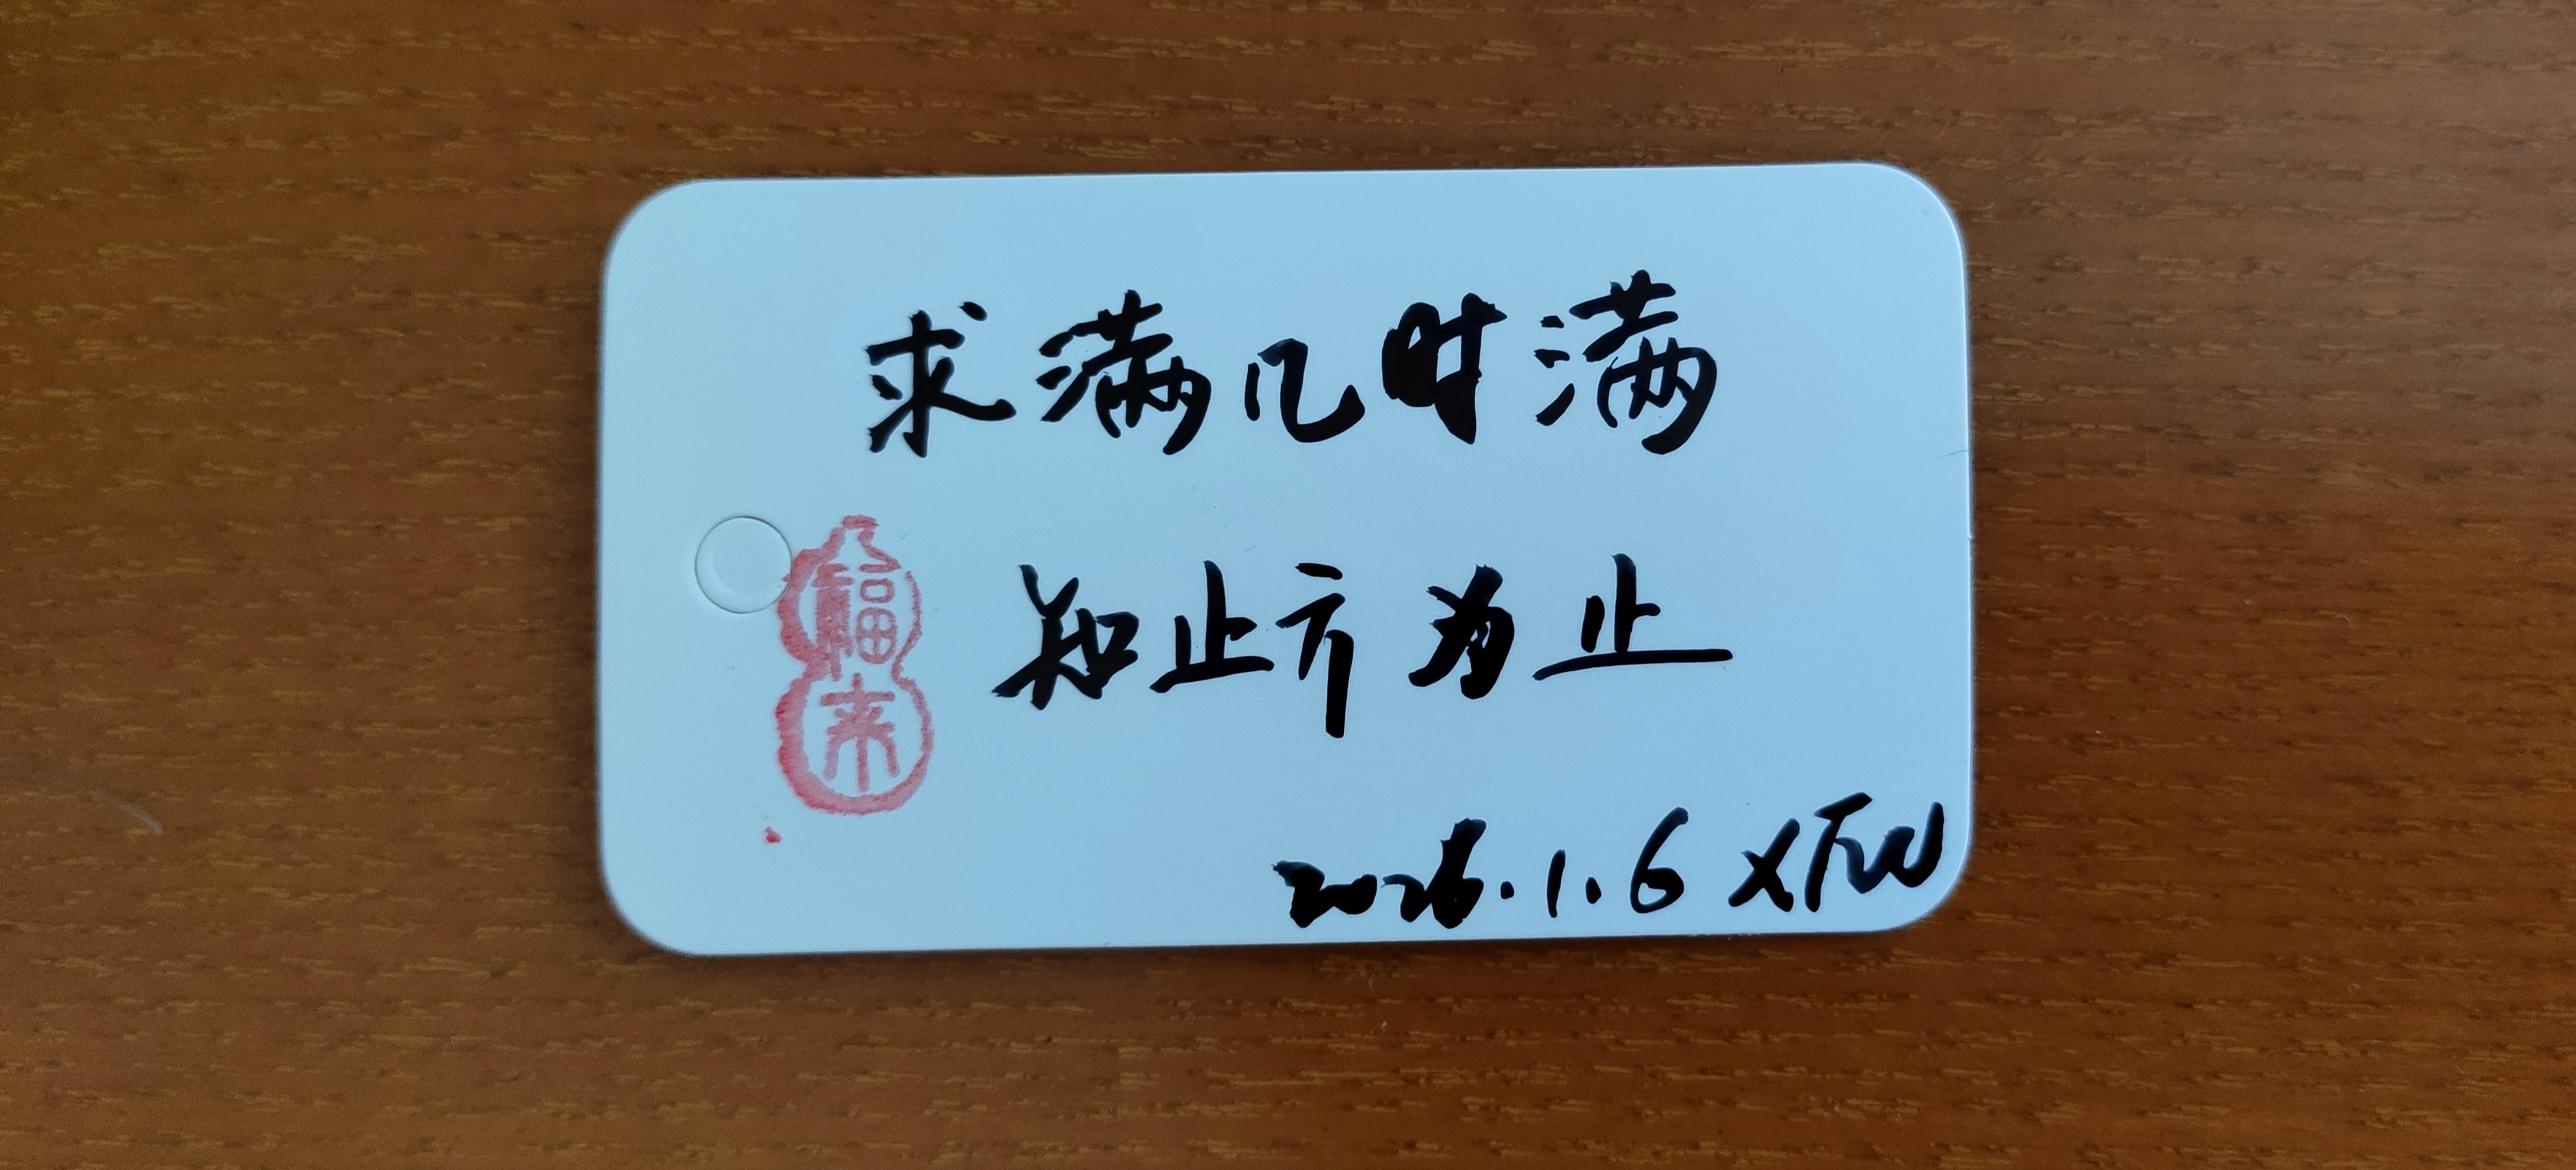 求满几时满
福来
知止方为止
2026.1.6 XTW